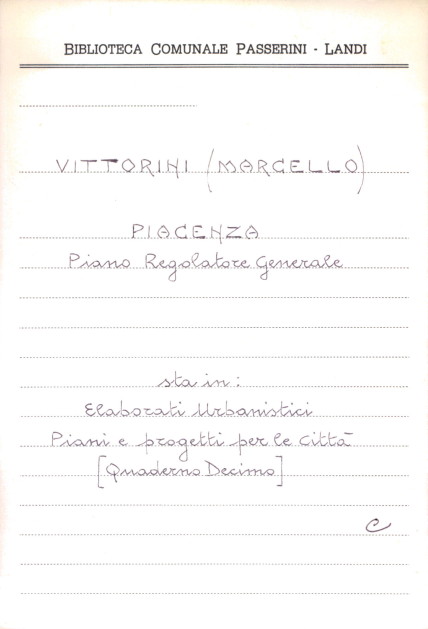 BIBLIOTECA COMUNALE PASSERINI - LANDI
VITTORINI (MARCELLO)
PIACENZA
Piano Regolatore Generale
sta in:
Elaborati Urbanistici
Piani e progetti per le Città
[Quaderno Decimo]
C